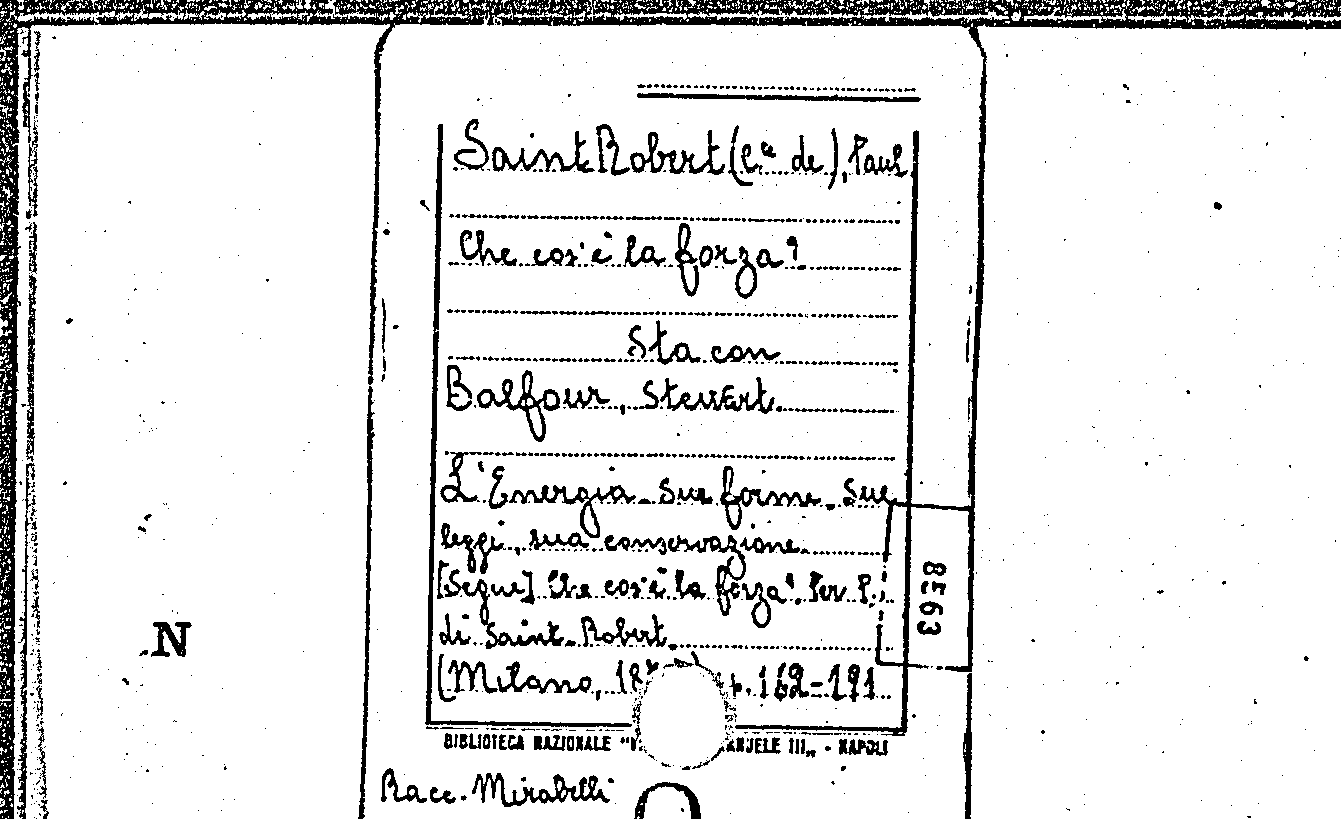 Saint Robert (C.te de), Paul
Che cos'è la forza?
Sta con
Balfour, Stewart.
L'Energia. Sue forme. Sue
leggi, sua conservazione.
[Segue] Che cos'è la forza? Per P.
di Saint-Robert.
(Milano, p. 162-191
8563
N
BIBLIOTECA NAZIONALE III„ - NAPOLI
Racc. Mirabelli